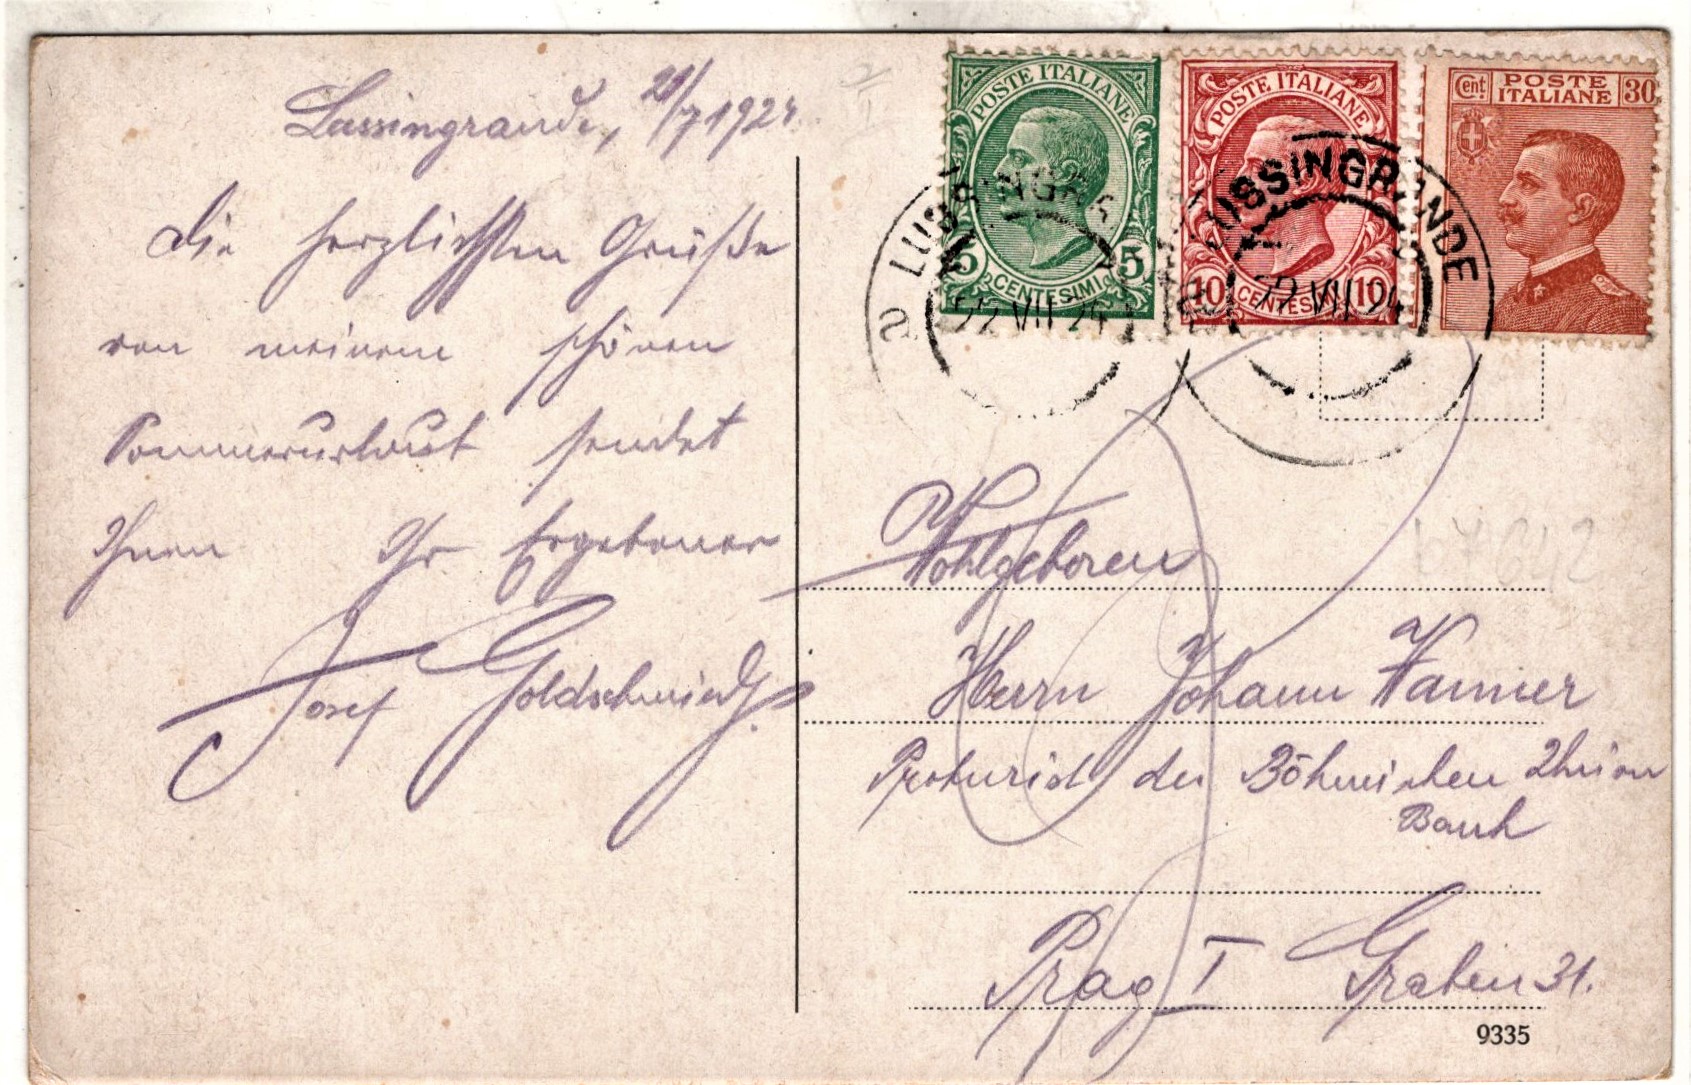 Lussingrande, 21/7 1924
Die herzlichsten Grüße
von meinem schönen
Sommerurlaub sendet
Ihnen Ihr Ergebener
Josef Goldschmied
POSTE ITALIANE
5 5
CENTESIMI
POSTE ITALIANE
10 10
CENTESIMI
Cent. POSTE ITALIANE 30
LUSSINGRANDE
22 VII 24
LUSSINGRANDE
22 VII 24
Wohlgeboren
Herrn Johann Wanner
Prokurist der Böhmischen Union
Bank
Prag I Graben 31.
9335